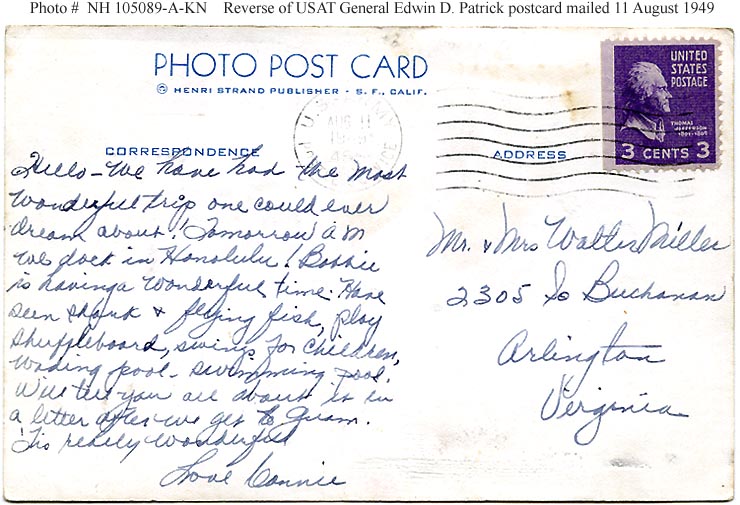 Photo # NH 105089-A-KN Reverse of USAT General Edwin D. Patrick postcard mailed 11 August 1949
PHOTO POST CARD
© HENRI STRAND PUBLISHER - S. F., CALIF.
UNITED
STATES
POSTAGE
THOMAS
JEFFERSON
1801-1809
3 CENTS 3
AUG 11
CORRESPONDENCE
ADDRESS
Hello - We have had the most
wonderful trip one could ever
dream about! Tomorrow A M
we dock in Honolulu! Bobbie
is having a wonderful time. Have
seen shark & flying fish, play
shuffleboard, swings for children,
wading pool - swimming pool.
Will tell you all about it in
a letter after we get to Guam.
'Tis really wonderful
Love Connie
Mr. & Mrs Walter Miller
2305 So Buchanan
Arlington
Virginia